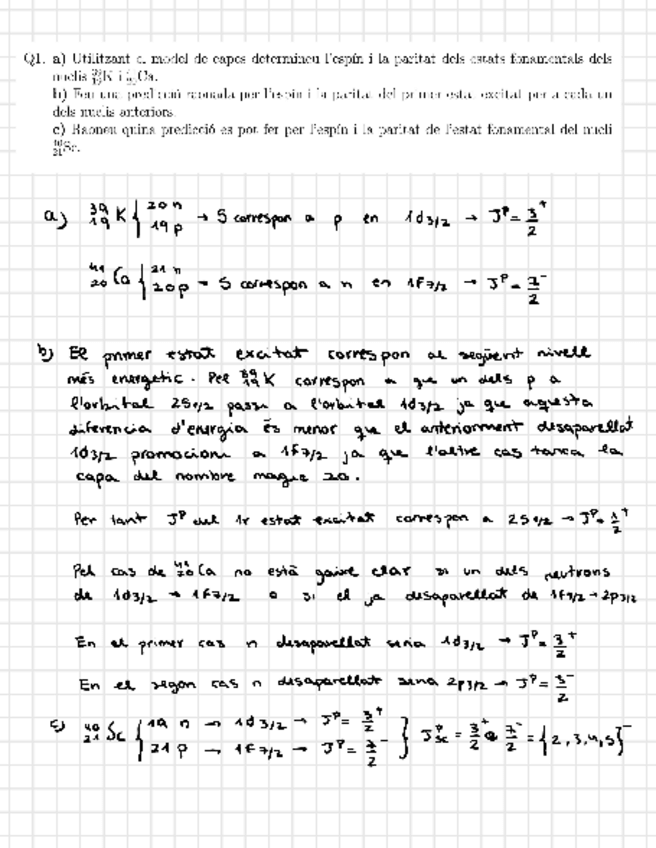 Q1. a) Utilitzant el model de capes determineu l'espín i la paritat dels estats fonamentals dels
nuclis ³⁹₁₉K i ⁴¹₂₀Ca.
b) Feu una predicció raonada per l'espín i la paritat del primer estat excitat per a cada un
dels nuclis anteriors.
c) Raoneu quina predicció es pot fer per l'espín i la paritat de l'estat fonamental del nucli
⁴⁰₂₁Sc.
a) ³⁹₁₉K { 20 n
19 p → S correspon a p en 1d3/2 → J^P = 3/2⁺
⁴¹₂₀Ca { 21 n
20 p → S correspon a n en 1f7/2 → J^P = 7/2⁻
b) El primer estat excitat correspon al següent nivell
més energetic. Pel ³⁹₁₉K correspon a que un dels p a
l'orbital 2S1/2 passi a l'orbital 1d3/2 ja que aquesta
diferencia d'energia és menor que el anteriorment desaparellat
1d3/2 promocioni a 1f7/2 ja que l'altre cas tanca la
capa del nombre magic 20.
Per tant J^P del 1r estat excitat correspon a 2S1/2 → J^P = 1/2⁺
Pel cas de ⁴¹₂₀Ca no està gaire clar si un dels neutrons
de 1d3/2 → 1f7/2 o si el ja desaparellat de 1f7/2 → 2p3/2
En el primer cas n desaparellat seria 1d3/2 → J^P = 3/2⁺
En el segon cas n desaparellat seria 2p3/2 → J^P = 3/2⁻
c) ⁴⁰₂₁Sc { 19 n → 1d3/2 → J^P = 3/2⁺
21 p → 1f7/2 → J^P = 7/2⁻ } J^P_Sc = 3/2⁺ ⊗ 7/2⁻ = {2,3,4,5}⁻